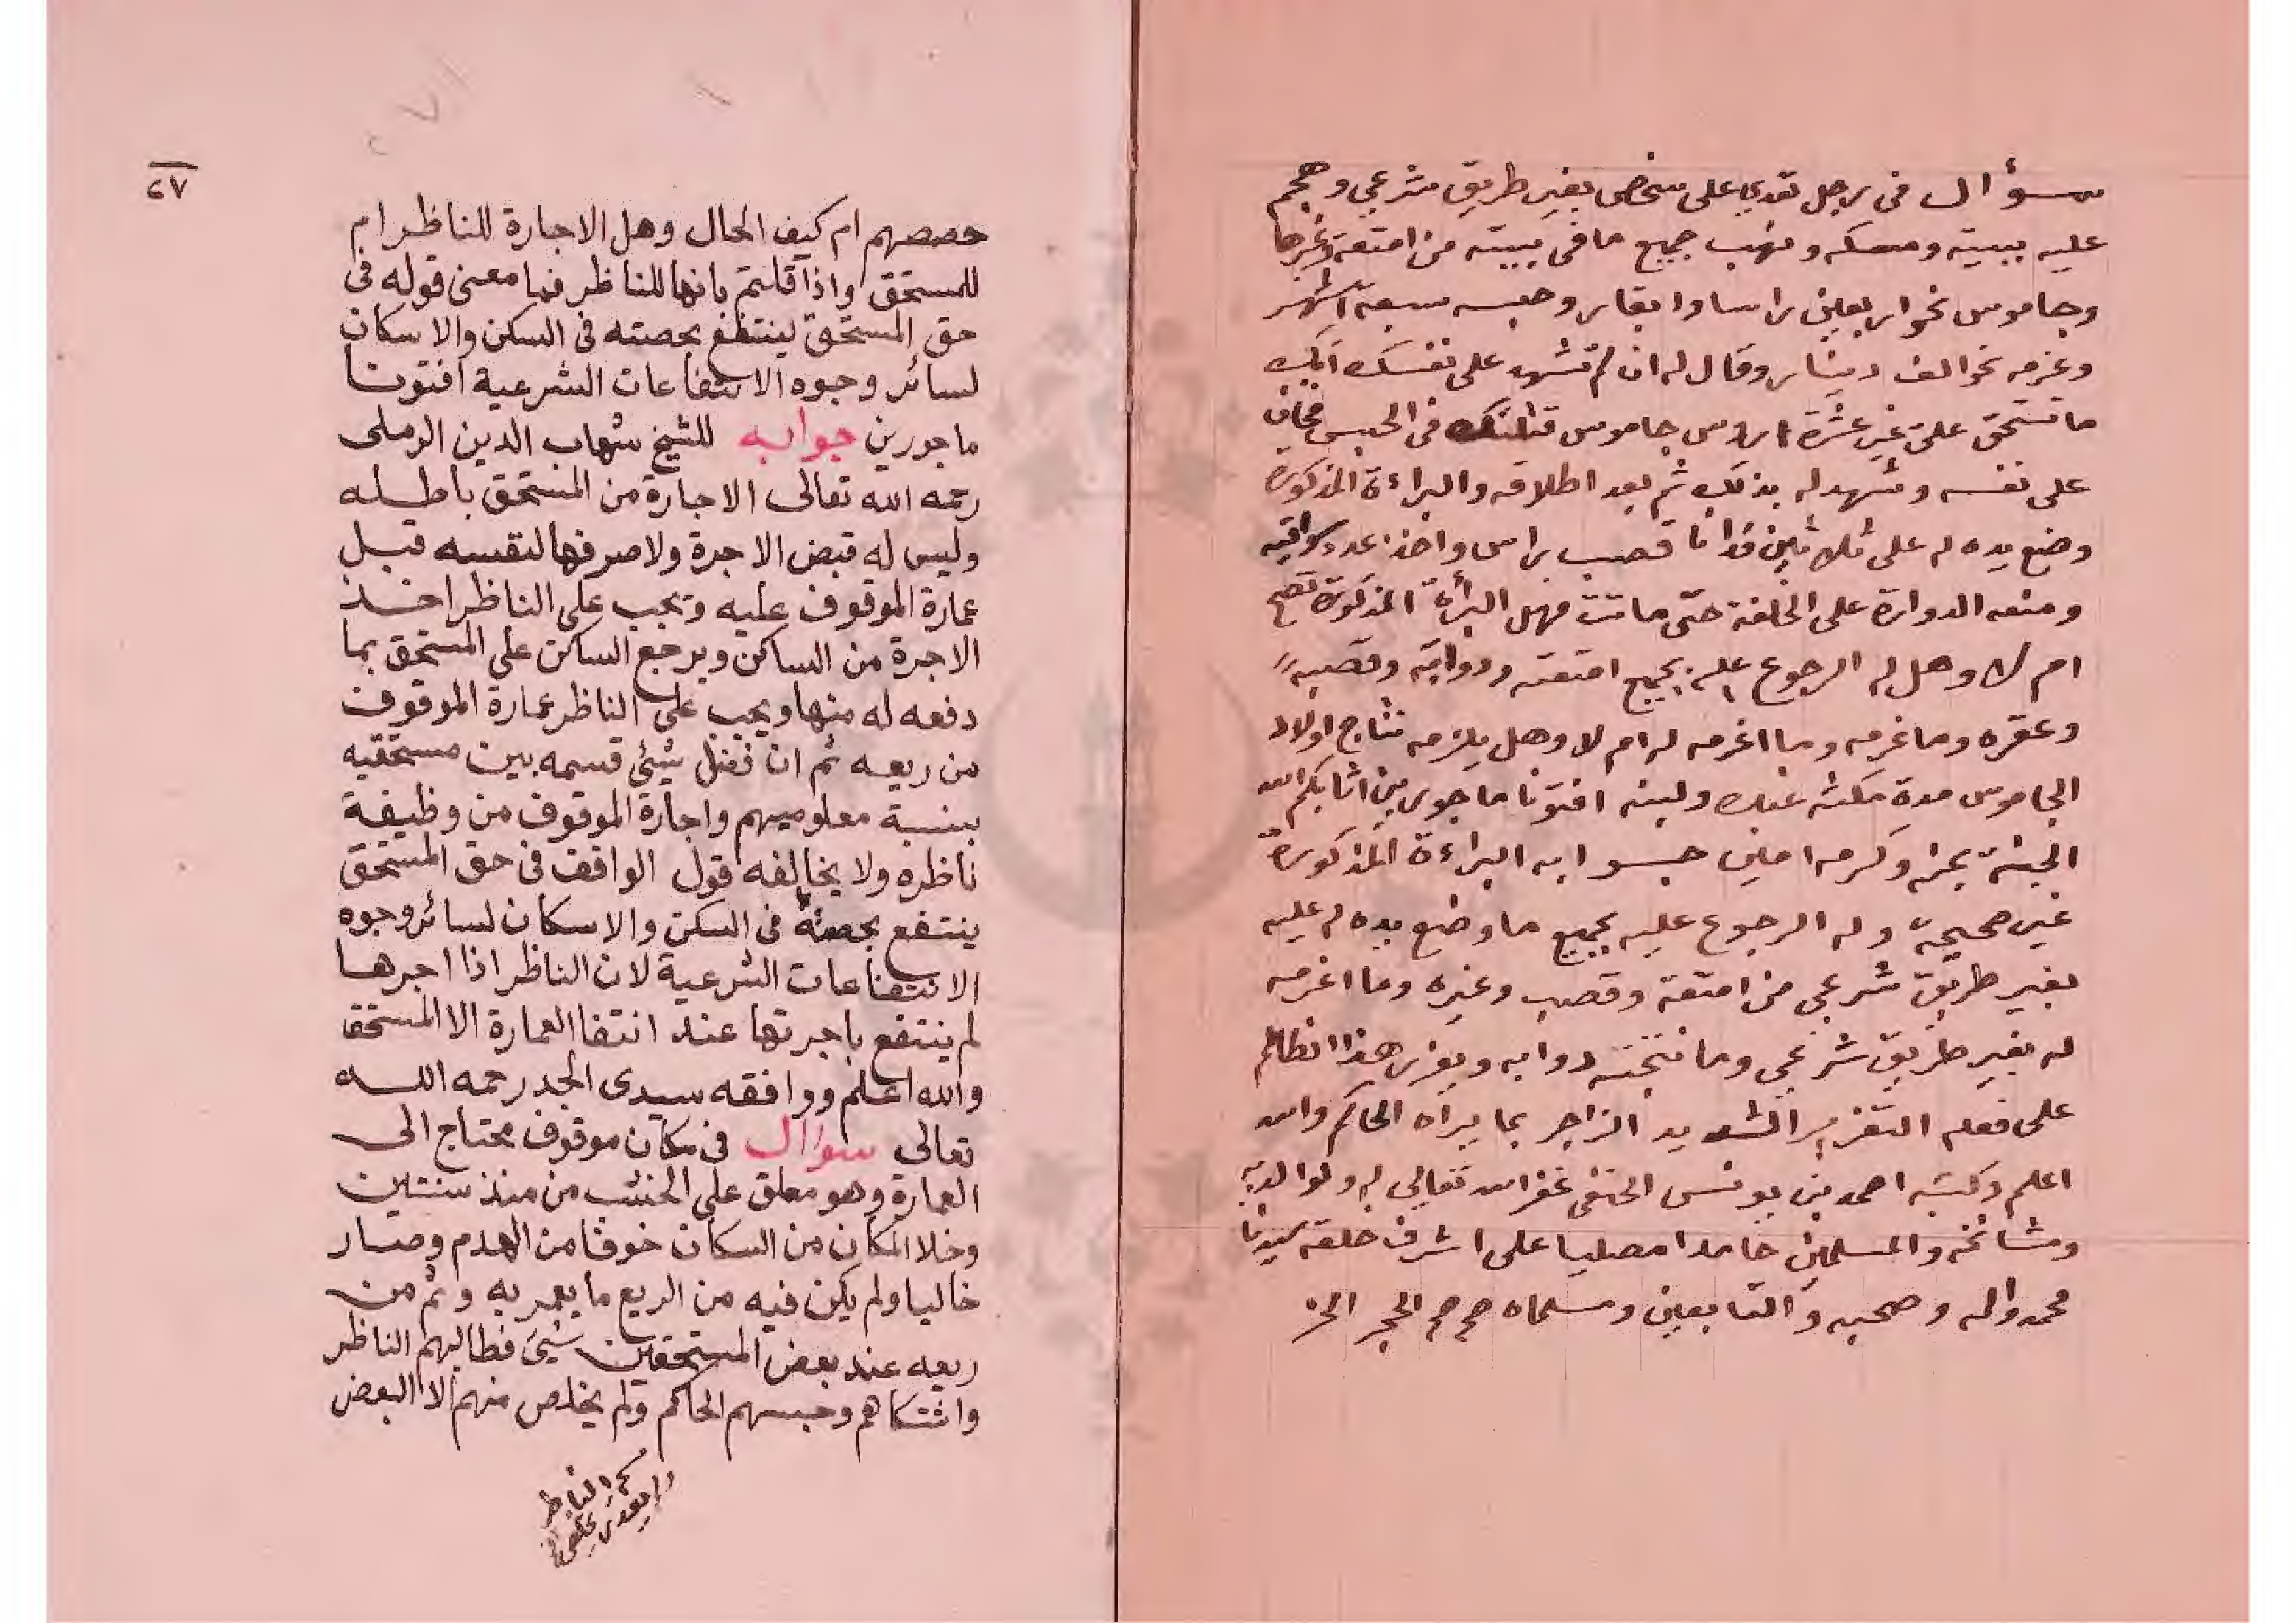 سؤال في رجل تعدي على شخص بغير طريق شرعي وهجم
عليه ببيته ومسكه ونهب جميع ما في بيته من امتعة وغيرها
وجاموس نحو اربعين راسا وابقار وحبسه سبعة اشهر
وغرمه نحو الف دينار وقال له ان لم تشهد على نفسك انك
ما تستحق علي غير عشرة اروس جاموس قتلتك في الحبس فخاف
على نفسه وشهد له بذلك ثم بعد اطلاقه والبراءة المذكورة
وضع يده له على ثلاثين فدانا قصب براس واخذ عدد سواقيه
ومنعه الدوارة على الخلفة حتى ماتت فهل البرأة المذكورة تصح
ام لا وهل له الرجوع عليه بجميع امتعته ودوابه وقصبه
وعقره وما غرمه وما اغرمه له ام لا وهل يلزمه نتاج اولاد
الجاموس مدة مكثه عنده ولبنه افتونا ماجورين اثابكم الله
الجنة بمنه وكرمه امين جوابه البراءة المذكورة
غير صحيحة وله الرجوع عليه بجميع ما وضع يده له عليه
بغير طريق شرعي من امتعة وقصب وغيره وما اغرمه
له بغير طريق شرعي وما نتجته دوابه ويعزر هذا الظالم
على فعله التعزير الشديد الزاجر بما يراه الحاكم والله
اعلم وكتبه احمد بن يونس الحنفي غفر الله تعالى له ولوالديه
ومشائخه والمسلمين حامدا مصليا على اشرف خلقه سيدنا
محمد واله وصحبه والتابعين ومسلما صح صح الحجر
٢٧
حصصهم ام كيف الحال وهل الاجارة للناظر ام
للمستحق واذا قلتم بانها للناظر فما معنى قوله في
حق المستحق لينتفع بحصته في السكن والاسكان
لسائر وجوه الانتفاعات الشرعية افتونا
ماجورين جوابه للشيخ شهاب الدين الرملى
رحمه الله تعالى الاجارة من المستحق باطله
وليس له قبض الاجرة ولا صرفها لنفسه قبل
عمارة الموقوف عليه ويجب على الناظر اخذ
الاجرة من الساكن ويرجع الساكن على المستحق بما
دفعه له منها ويجب على الناظر عمارة الموقوف
من ريعه ثم ان فضل شيئ قسمه بين مستحقيه
بنسبة معلوميهم واجارة الموقوف من وظيفة
ناظره ولا يخالفه قول الواقف في حق المستحق
ينتفع بحصته في السكن والاسكان لسائر وجوه
الانتفاعات الشرعية لان الناظر اذا اجرها
لم ينتفع باجرتها عند انتفا العمارة الا المستحق
والله اعلم ووافقه سيدى الجد رحمه الله
تعالى سواال في مكان موقوف محتاج الى
العمارة وهو معلق على الخشب من منذ سنتين
وخلا المكان من السكان خوفا من الهدم وصار
خاليا ولم يكن فيه من الريع ما يعمر به وثم من
ريعه عند بعض المستحقين شيئ فطالبهم الناظر
واشتكاهم وحبسهم الحاكم ولم يخلص منهم الا البعض